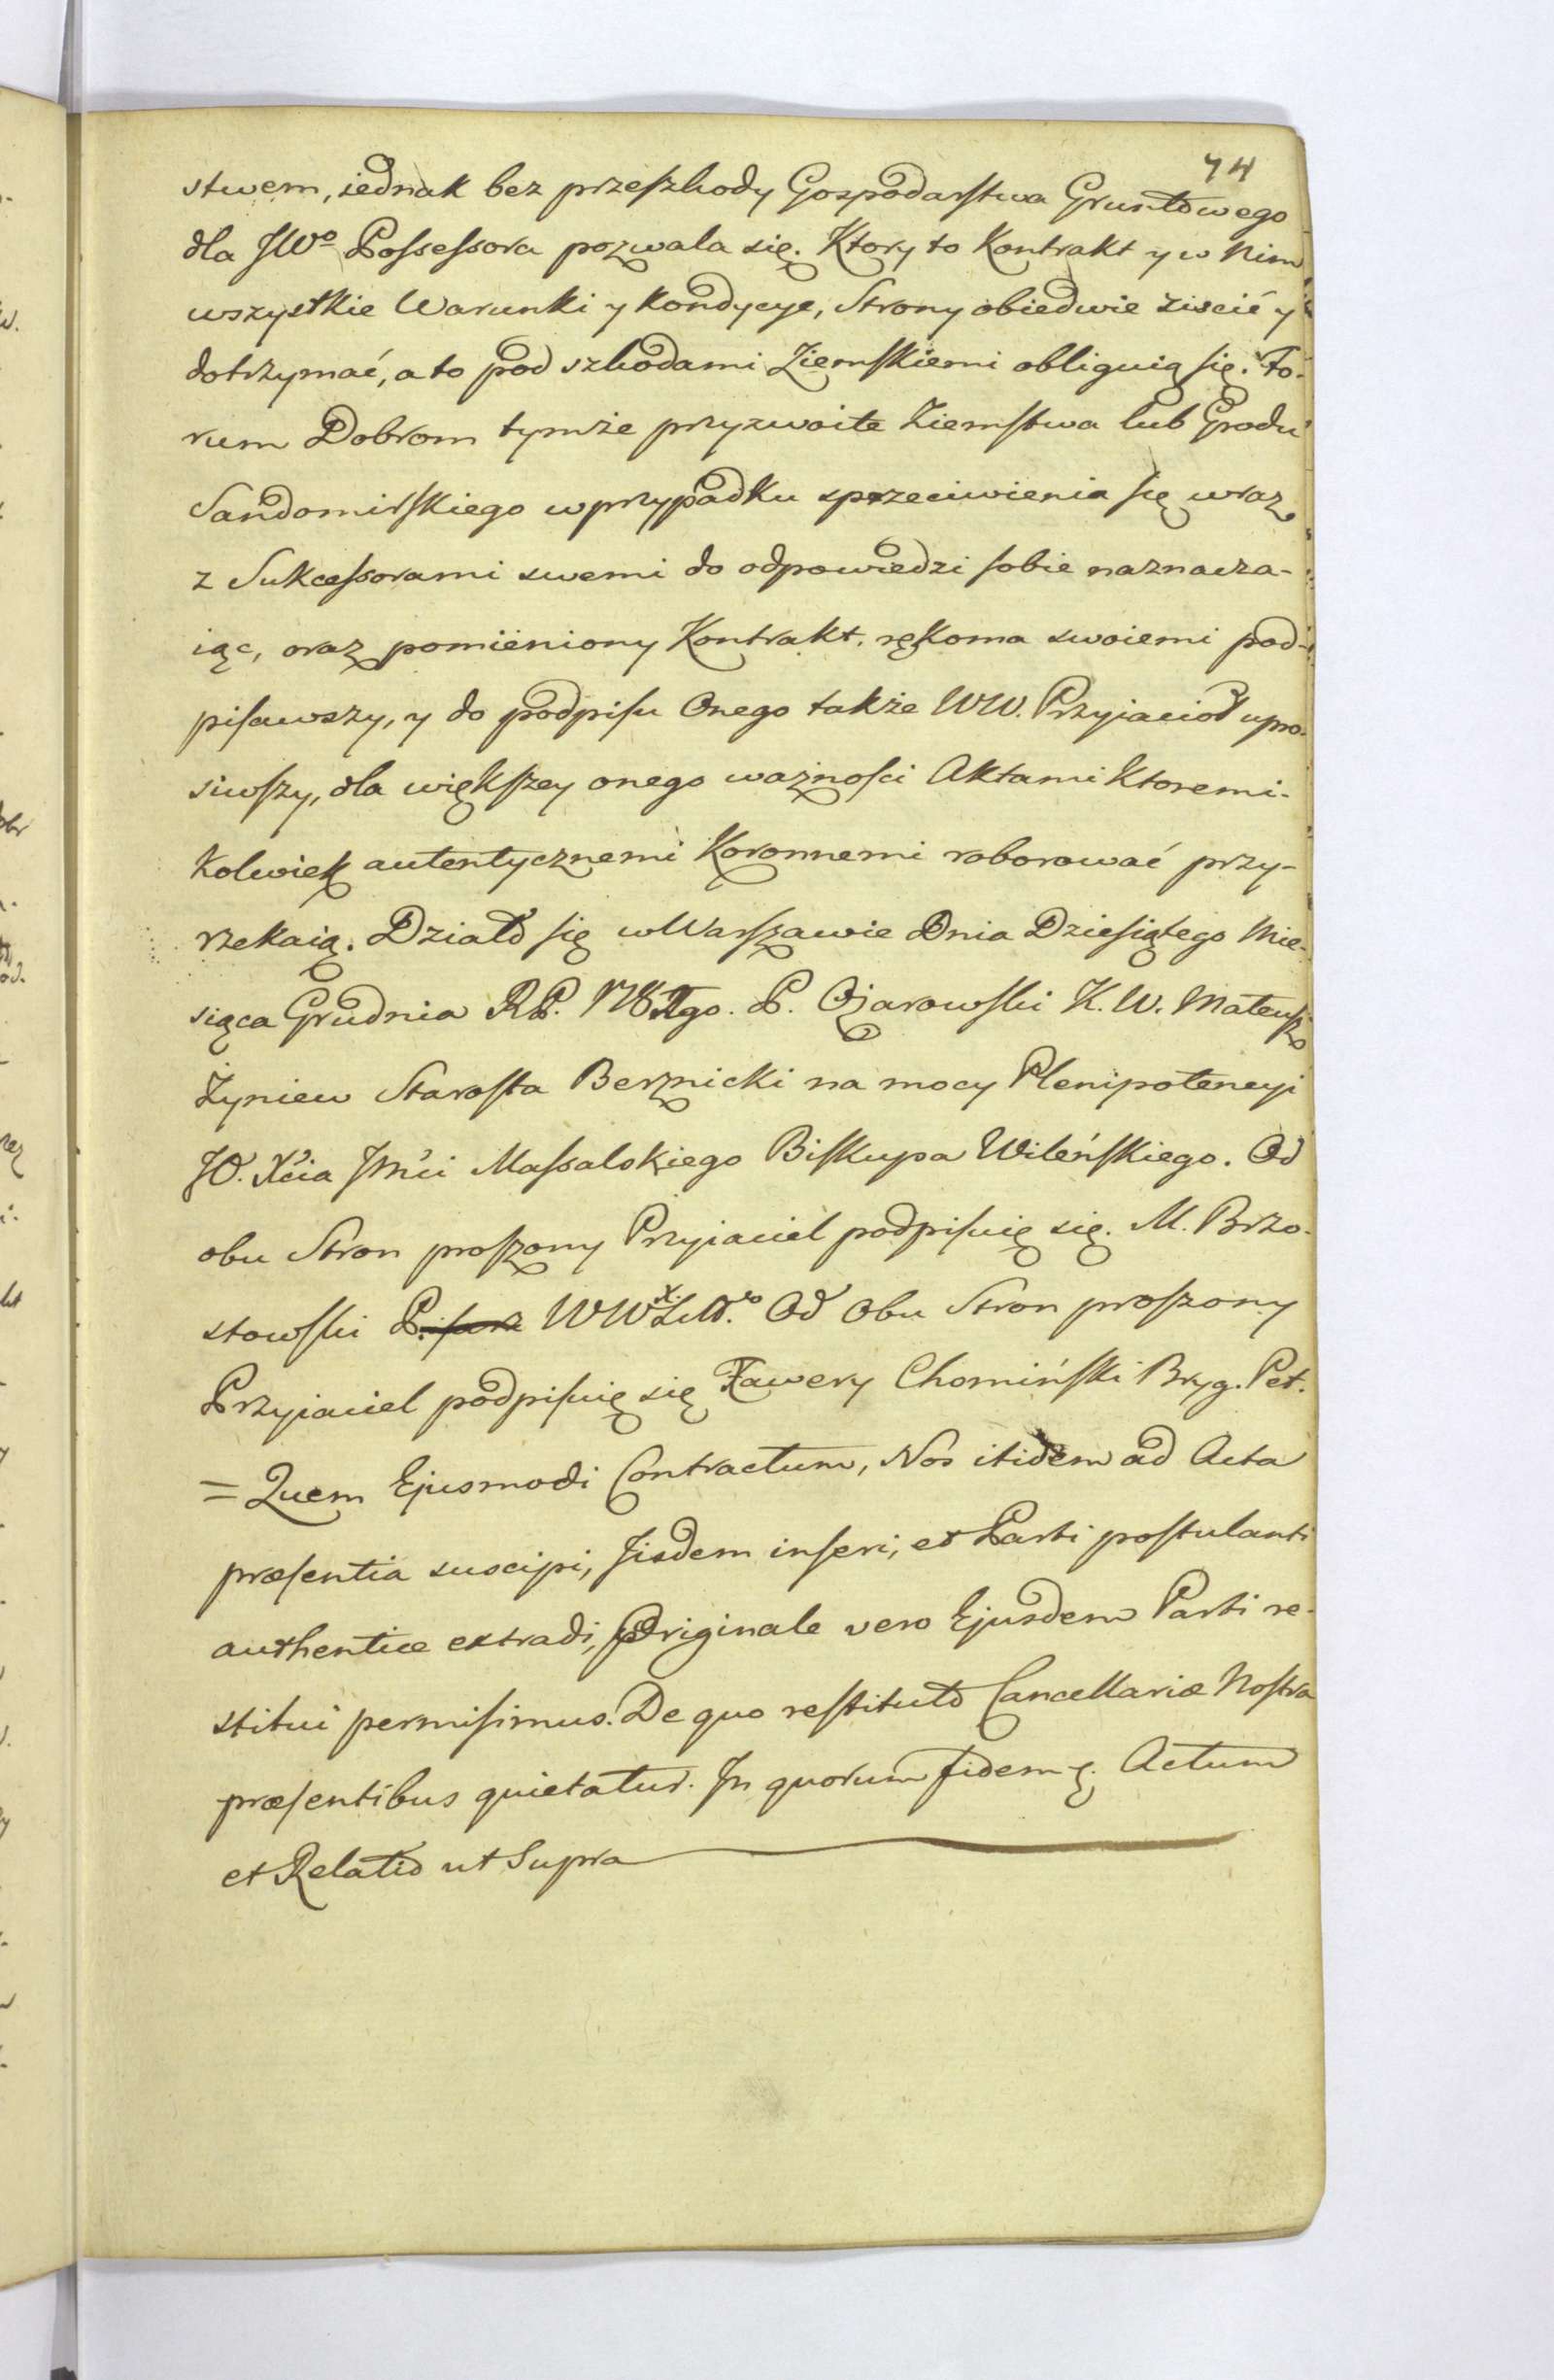 74
stwem, iednak bez przeszkody Gospodarstwa Gruntowego
dla JWo Possessora pozwala się. Ktory to Kontrakt y w Nim
wszystkie Warunki y Kondycye, Strony obiedwie ziscić y
dotrzymać, a to pod szkodami Ziemskiemi obliguią się. Fo-
rum Dobrom tymże przyzwoite Ziemstwa lub Grodu
Sandomirskiego w przypadku sprzeciwienia się wraz
z Sukcessorami swemi do odpowiedzi sobie naznacza-
iąc, oraz pomieniony Kontrakt, rękoma swoiemi pod-
pisawszy, y do podpisu Onego także WW. Przyjaciół upro-
siwszy, dla większey onego ważności Aktami Ktoremi-
kolwiek autentycznemi Koronnemi roborować przy-
rzekaią. Działo się w Warszawie Dnia Dziesiątego Mie-
siąca Grudnia RP. go. P. Ożarowski K. W. Mateusz
Żyniew Starosta Berznicki na mocy Plenipotencyi
JO. Xcia Jmci Massalskiego Biskupa Wileńskiego. Od
obu Stron proszony Przyiaciel podpisuię się. M. Brzo-
stowski Pisarz WWXLitt. Od Obu Stron proszony
Przyiaciel podpisuię się Xawery Chomiński Bryg. Pet.
= Quem Ejusmodi Contractum, Nos itidem ad Acta
præsentia suscipi, Jisdem inseri, et Parti postulanti
authentice extradi, Originale vero Ejusdem Parti re-
stitui permisimus. De quo restituto Cancellariæ Nostra
præsentibus quietatur. In quorum fidem ę. Actum
et Relatio ut Supra